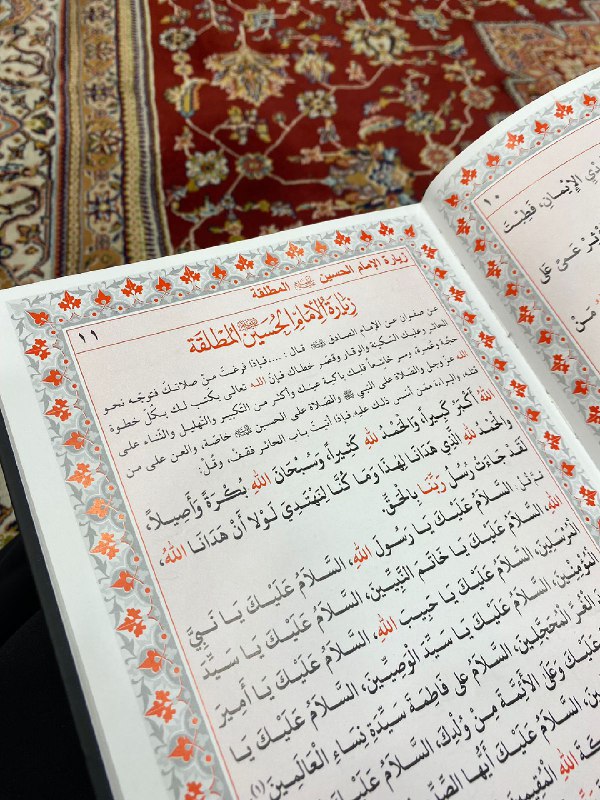 ١٠
ذي الإيْمانِ،
عَمىً عَلى
مَنْ
زيارة الإمام الحسين المطلقة
١١
زيارة الإمام الحسين المطلقة
عن صفوان عن الإمام الصادق قال: ....فإذا فرغت من صلاتك فتوجّه نحو
الحائر وعليك السكينة والوقار وقصّر خطاك فإنّ الله تعالى يكتب لك بكلّ خطوة
حجّة وعمرة، وسر خاشعاً قلبك باكية عينك وأكثر من التكبير والتهليل والثناء على
الله عزّ وجل والصلاة على النبي والصلاة على الحسين خاصّة، والعن على من
قتله والبراءة ممّن أسس ذلك عليه فإذا أتيت باب الحائر فقف، وقُل:
اللهُ أَكْبَرُ كَبِيراً، وَالْحَمْدُ للهِ كَثِيراً، وَسُبْحَانَ اللهِ بُكْرَةً وَأَصِيلاً،
وَالْحَمْدُ للهِ الَّذِي هَدَانَا لِهٰذَا وَمَا كُنَّا لِنَهْتَدِيَ لَوْلَا أَنْ هَدَانَا اللهُ،
لَقَدْ جَاءَتْ رُسُلُ رَبِّنَا بِالْحَقِّ.
السَّلَامُ عَلَيْكَ يَا رَسُولَ اللهِ، السَّلَامُ عَلَيْكَ يَا نَبِيَّ
اللهِ، السَّلَامُ عَلَيْكَ يَا خَاتَمَ النَّبِيِّينَ، السَّلَامُ عَلَيْكَ يَا سَيِّدَ
الْمُرْسَلِينَ، السَّلَامُ عَلَيْكَ يَا حَبِيبَ اللهِ، السَّلَامُ عَلَيْكَ يَا أَمِيرَ
الْمُؤْمِنِينَ، السَّلَامُ عَلَيْكَ يَا سَيِّدَ الْوَصِيِّينَ، السَّلَامُ عَلَيْكَ يَا
الْغُرِّ الْمُحَجَّلِينَ، السَّلَامُ عَلى فَاطِمَةَ سَيِّدَةِ نِسَاءِ الْعَالَمِينَ (١)
عَلَيْكَ وَعَلَى الْأَئِمَّةِ مِنْ وُلْدِكَ، السَّلَامُ عَلَيْكَ
السَّلَامُ عَلَيْكَ أَيُّهَا
اللهِ الْمُقِيمِينَ